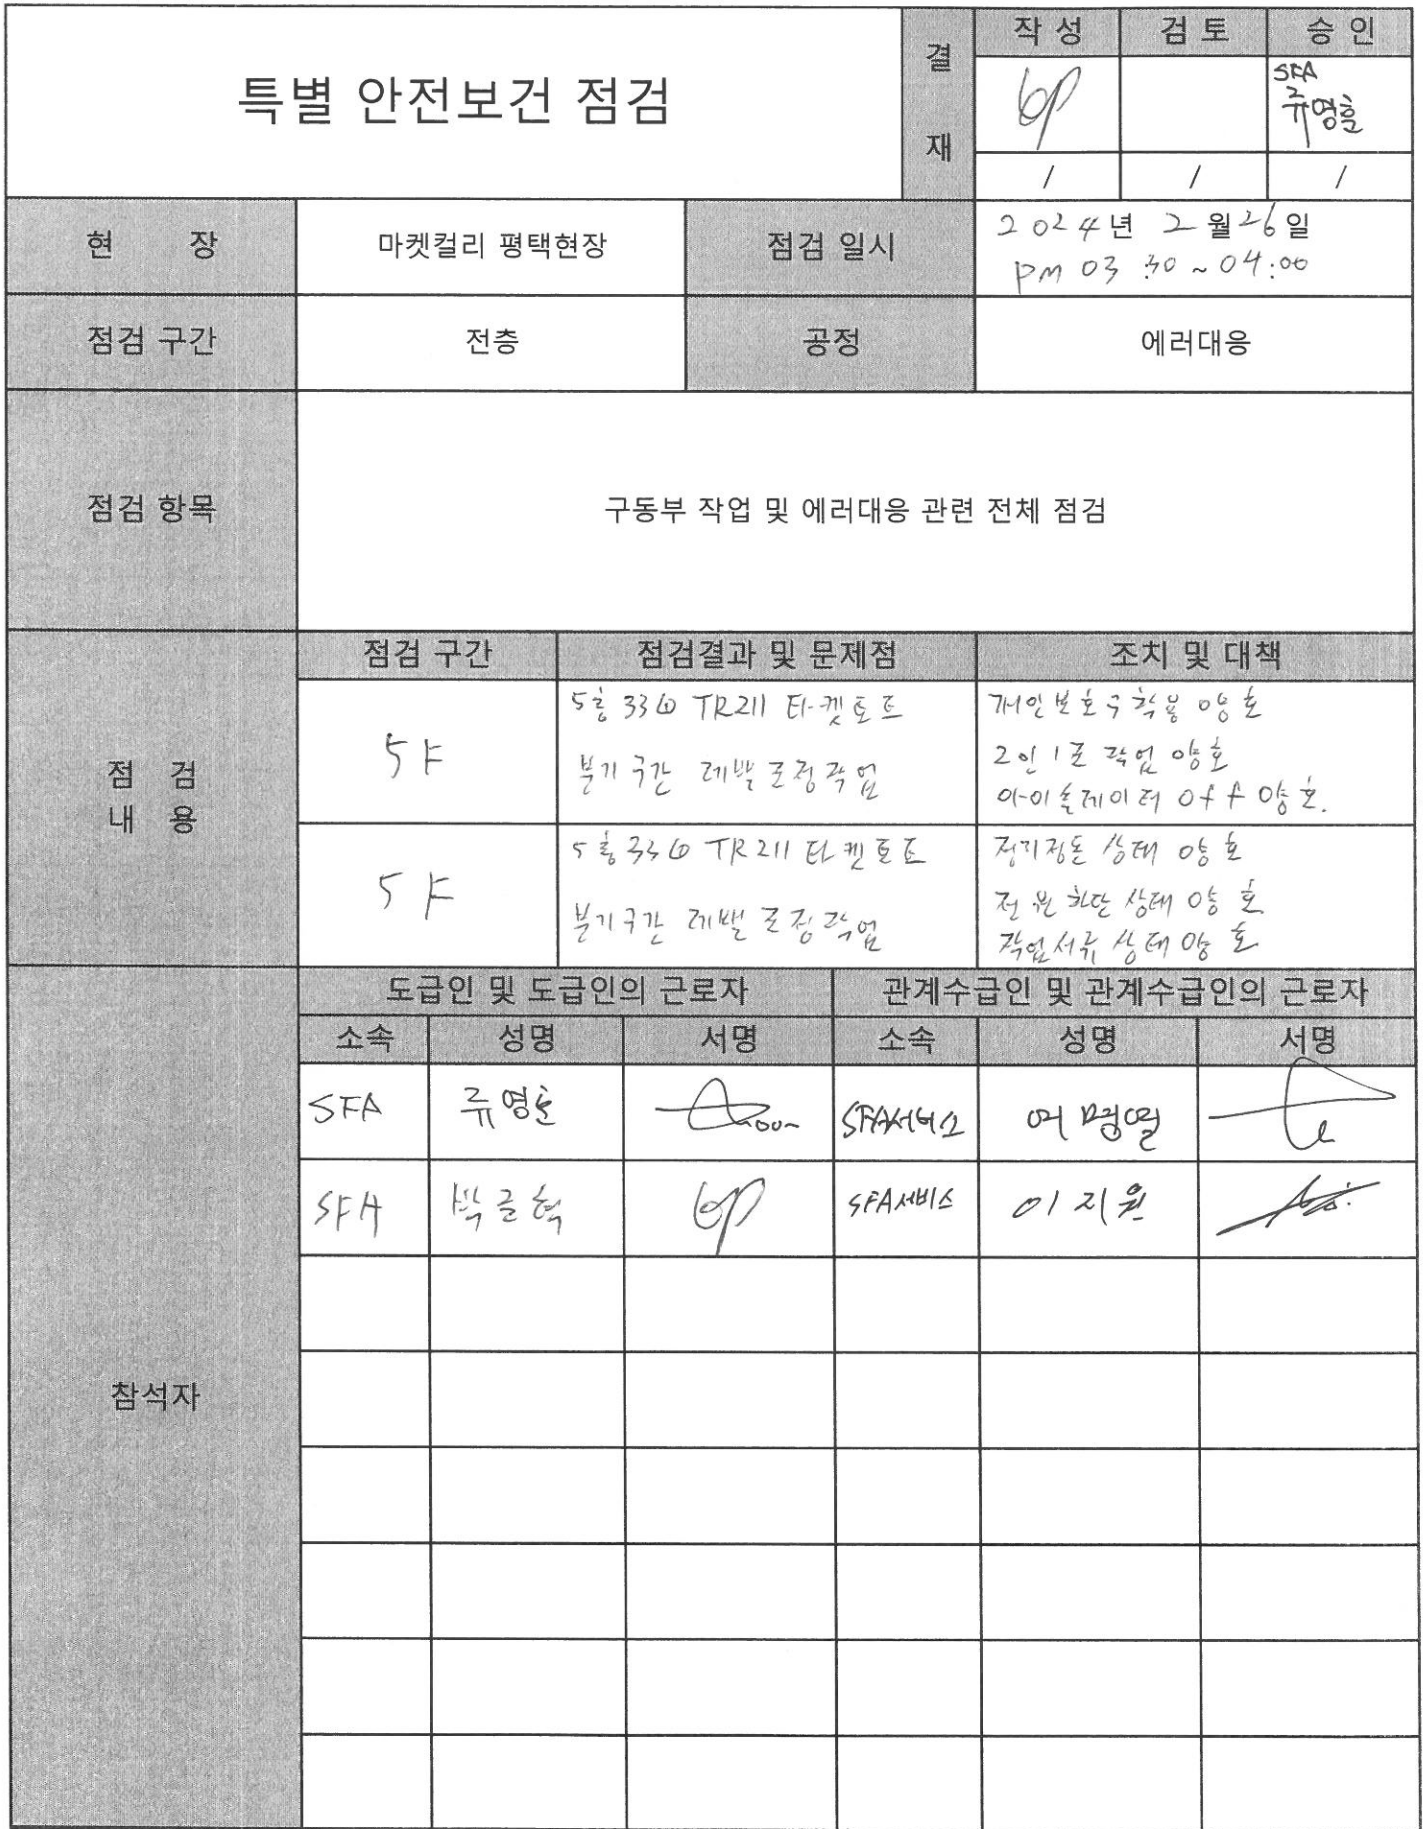 특별 안전보건 점검
결재
작성 검토 승인
SFA
류영훈
/ / /
현 장 마켓컬리 평택현장 점검 일시 2024년 2월 26일
PM 03:30 ~ 04:00
점검 구간 전층 공정 에러대응
점검 항목 구동부 작업 및 에러대응 관련 전체 점검
점검 내용
점검 구간 점검결과 및 문제점 조치 및 대책
5F
5층 TR211 타켓토트
분기구간 레벨조정작업
개인보호구착용 양호
2인1조 작업 양호
아이솔레이터 off 양호.
5F
5층 TR211 타켓토트
분기구간 레벨조정작업
정리정돈 상태 양호
전원차단 상태 양호
작업서류 상태 양호
참석자
도급인 및 도급인의 근로자 관계수급인 및 관계수급인의 근로자
소속 성명 서명 소속 성명 서명
SFA 류영훈 SFA서비스
SFA SFA서비스 이지원